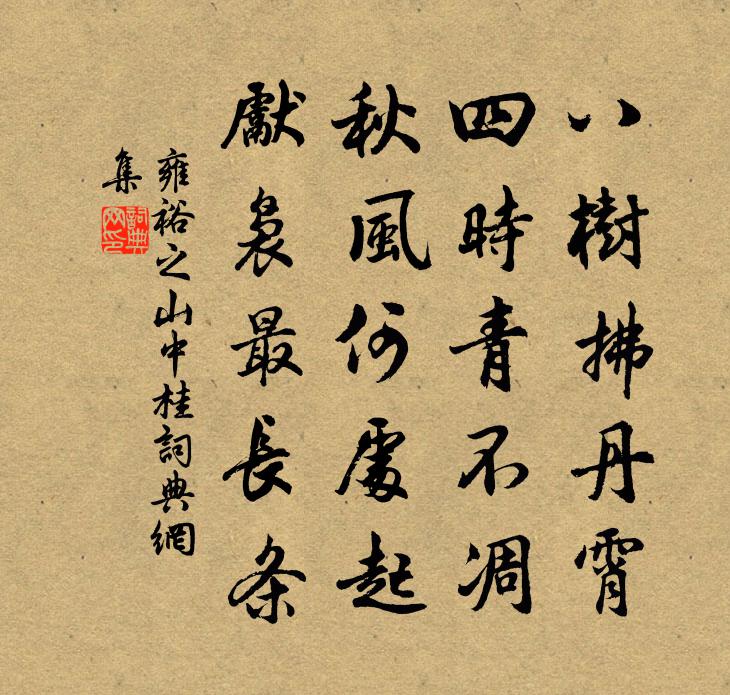 八樹拂丹霄
四時青不凋
秋風何處起
獻裊最長条
雍裕之山中桂詞典網
集
詞典网印